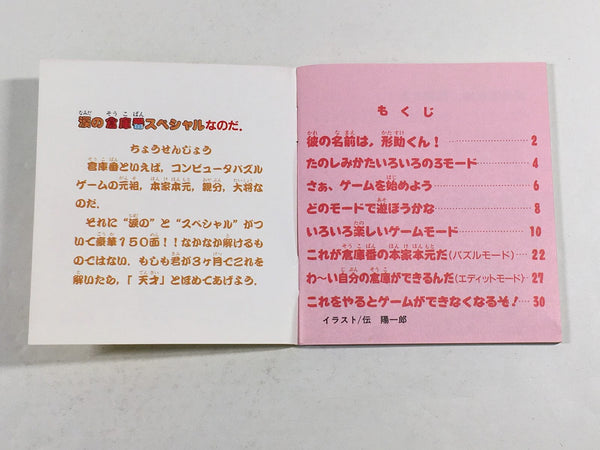 涙の倉庫番スペシャルなのだ．
ちょうせんじょう
倉庫番といえば，コンピュータパズル
ゲームの元祖，本家本元，親分，大将な
のだ．
それに“涙の”と“スペシャル”がつ
いて豪華150面！！なかなか解けるも
のではない．もしも君が3ヶ月でこれを
解いたら，「天才」とほめてあげよう．
もくじ
彼の名前は，形助くん！ 2
たのしみかたいろいろの3モード 4
さぁ，ゲームを始めよう 6
どのモードで遊ぼうかな 8
いろいろ楽しいゲームモード 10
これが倉庫番の本家本元だ(パズルモード) 22
わ〜い自分の倉庫ができるんだ(エディットモード) 27
これをやるとゲームができなくなるぞ！… 30
イラスト/伝 陽一郎